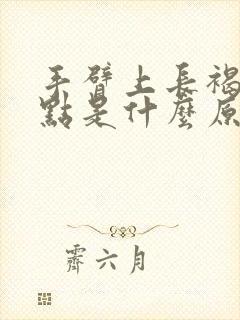 手臂上長褐
點是什麼原
霽六月